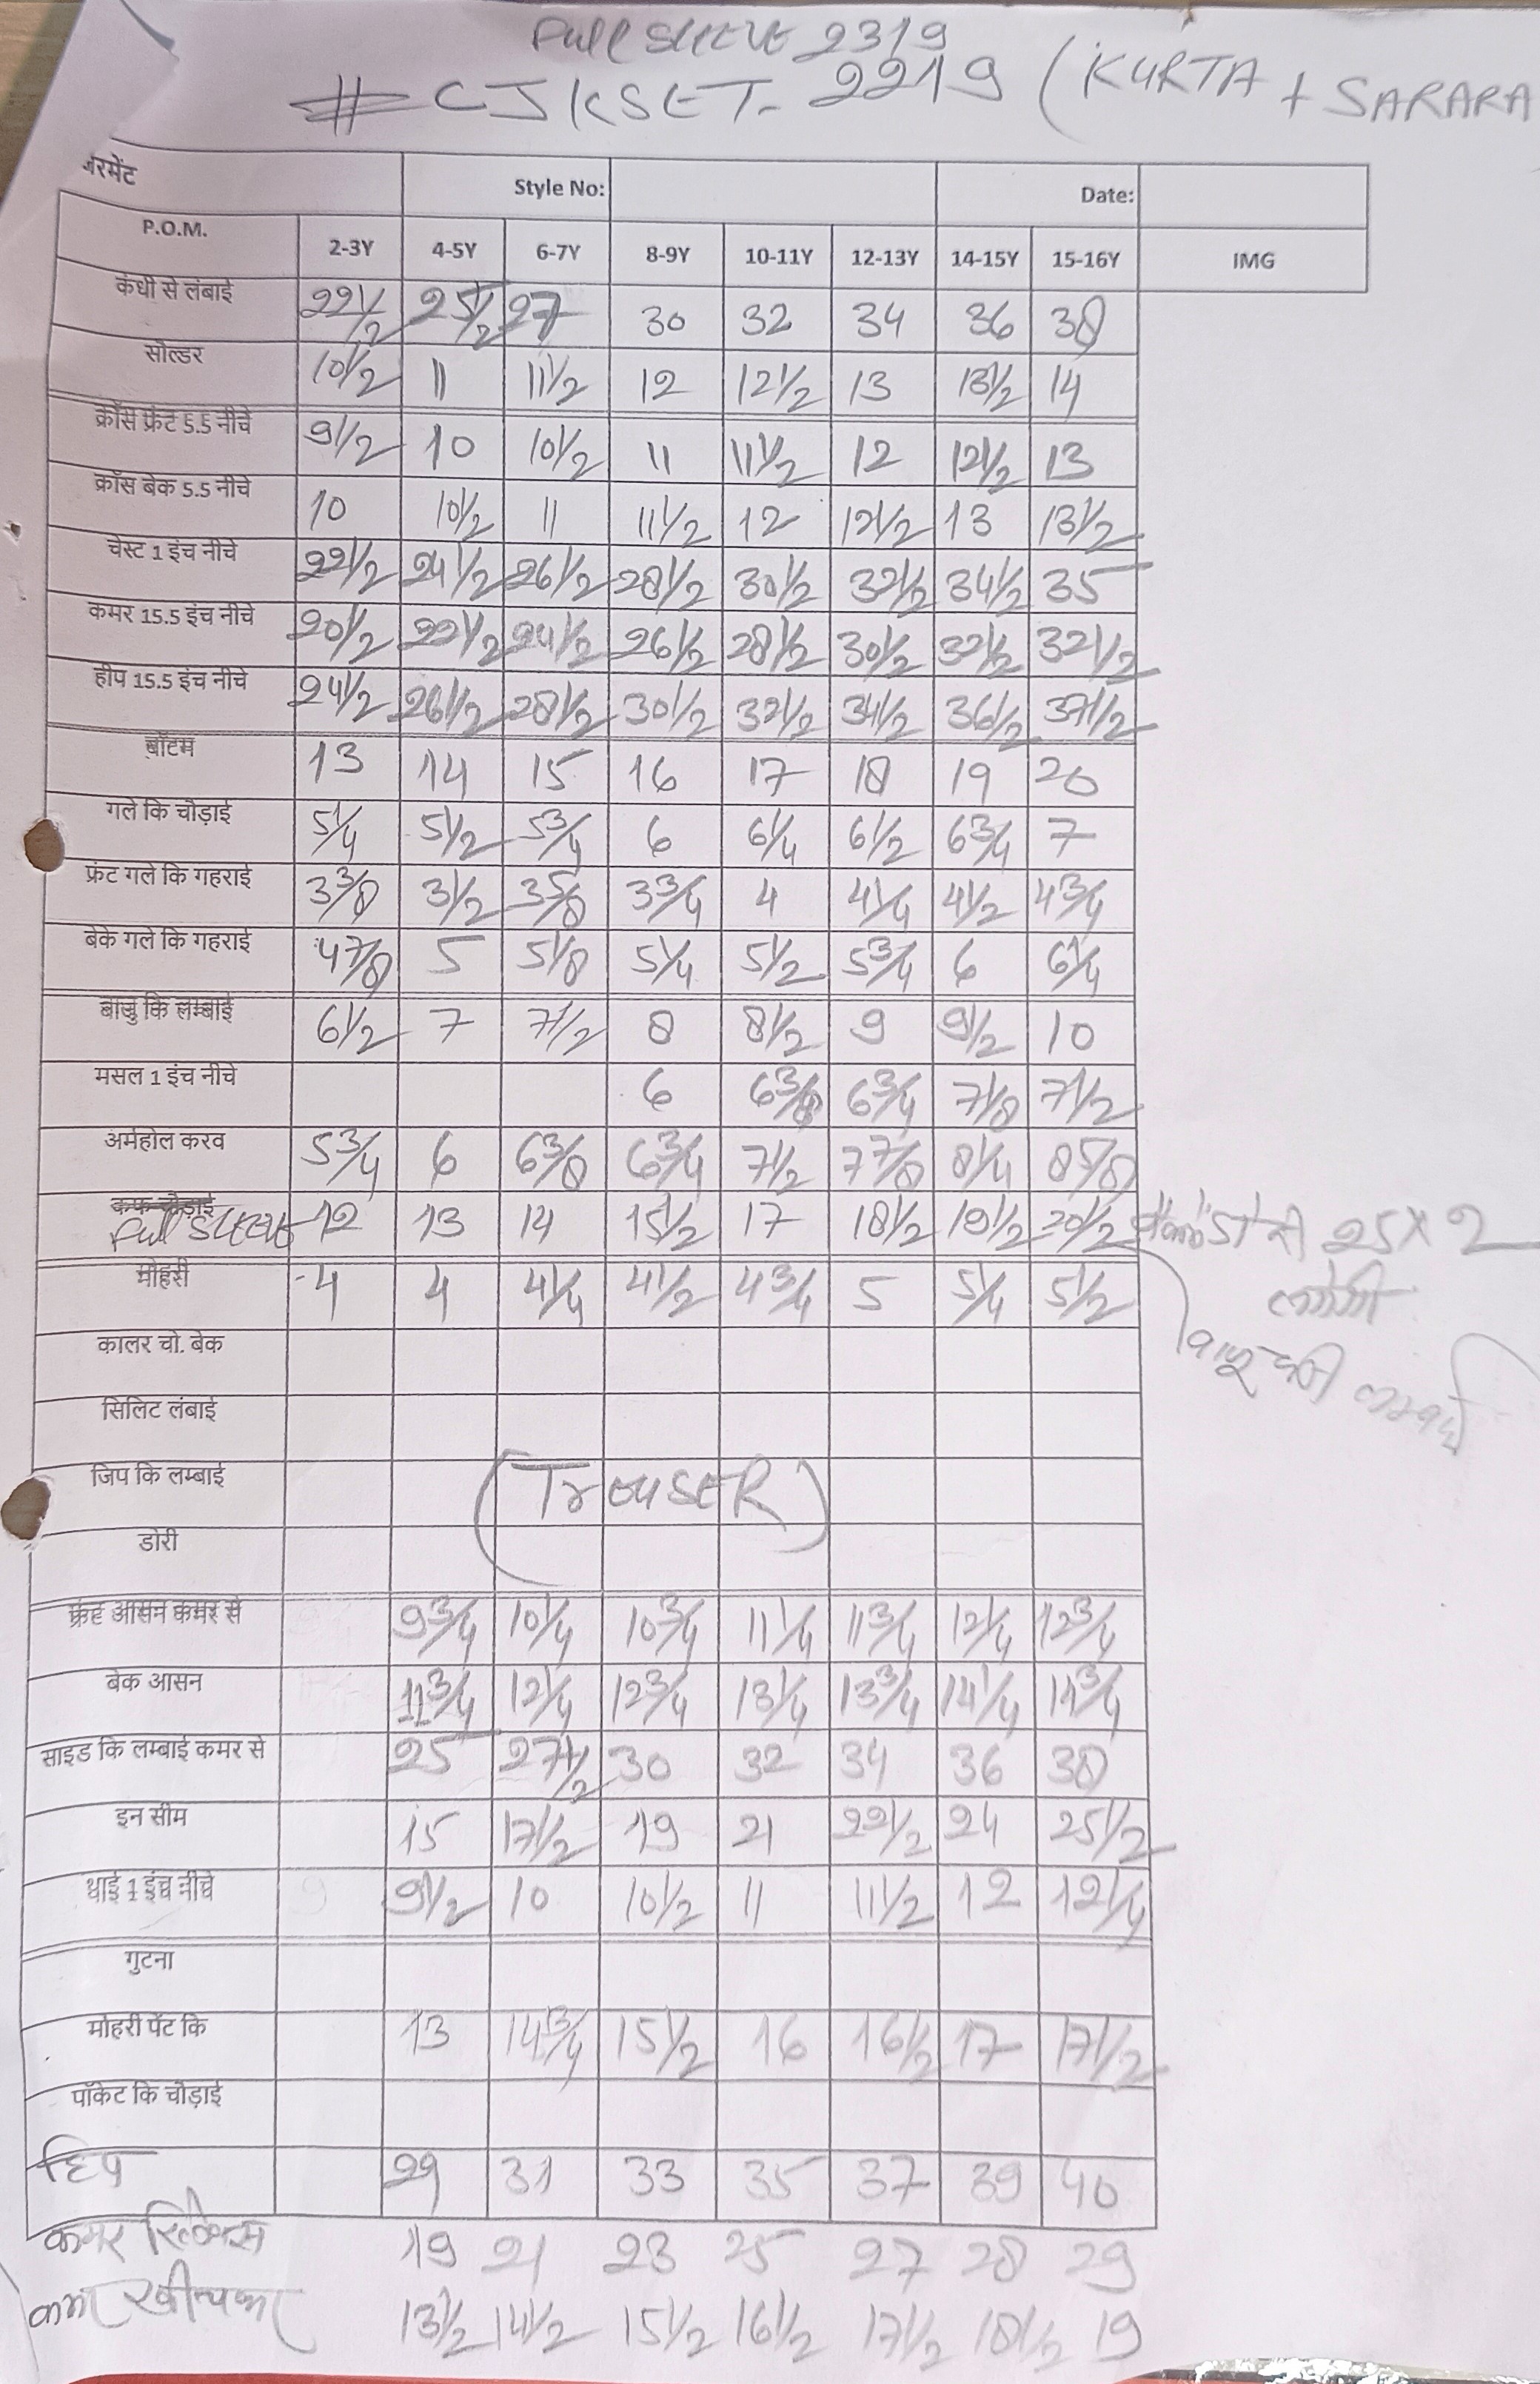 Full SLEEVE 2319
# CJKSET-2219 (KURTA + SARARA
गरमेंट Style No: Date:
P.O.M. 2-3Y 4-5Y 6-7Y 8-9Y 10-11Y 12-13Y 14-15Y 15-16Y IMG
कंधी से लंबाई 22 1/2 25 1/2 27 30 32 34 36 38
सोल्डर 10 1/2 11 11 1/2 12 12 1/2 13 13 1/2 14
क्रॉस फ्रंट 5.5 नीचे 9 1/2 10 10 1/2 11 11 1/2 12 12 1/2 13
क्रॉस बेक 5.5 नीचे 10 10 1/2 11 11 1/2 12 12 1/2 13 13 1/2
चेस्ट 1 इंच नीचे 22 1/2 24 1/2 26 1/2 28 1/2 30 1/2 32 1/2 34 1/2 35
कमर 15.5 इंच नीचे 20 1/2 22 1/2 24 1/2 26 1/2 28 1/2 30 1/2 32 1/2 32 1/2
हीप 15.5 इंच नीचे 24 1/2 26 1/2 28 1/2 30 1/2 32 1/2 34 1/2 36 1/2 37 1/2
बॉटम 13 14 15 16 17 18 19 20
गले कि चौड़ाई 5 1/4 5 1/2 5 3/4 6 6 1/4 6 1/2 6 3/4 7
फ्रंट गले कि गहराई 3 3/8 3 1/2 3 5/8 3 3/4 4 4 1/4 4 1/2 4 3/4
बेके गले कि गहराई 4 7/8 5 5 1/8 5 1/4 5 1/2 5 3/4 6 6 1/4
बाजु कि लम्बाई 6 1/2 7 7 1/2 8 8 1/2 9 9 1/2 10
मसल 1 इंच नीचे 6 6 3/8 6 3/4 7 1/8 7 1/2
अर्महोल करव 5 3/4 6 6 3/8 6 3/4 7 1/2 7 7/8 8 1/4 8 5/8
कफ चौड़ाई
Full SLEEVE 12 13 14 15 1/2 17 18 1/2 19 1/2 20 1/2 25 x 2
मोहरी 4 4 4 1/4 4 1/2 4 3/4 5 5 1/4 5 1/2 लगेगी
कालर चो. बेक बाजू की लम्बाई
सिलिट लंबाई
जिप कि लम्बाई (TrouSER)
डोरी
फ्रंट आसन कमर से 9 3/4 10 1/4 10 3/4 11 1/4 11 3/4 12 1/4 12 3/4
बेक आसन 11 3/4 12 1/4 12 3/4 13 1/4 13 3/4 14 1/4 14 3/4
साइड कि लम्बाई कमर से 25 27 1/2 30 32 34 36 38
इन सीम 15 17 1/2 19 21 22 1/2 24 25 1/2
थाई 1 इंच नीचे 9 9 1/2 10 10 1/2 11 11 1/2 12 12 1/4
गुटना
मोहरी पेंट कि 13 14 3/4 15 1/2 16 16 1/2 17 17 1/2
पॉकेट कि चौड़ाई
हिप 29 31 33 35 37 39 40
कमर रिलेक्स 19 21 23 25 27 28 29
कमर खीचकर 13 1/2 14 1/2 15 1/2 16 1/2 17 1/2 18 1/2 19